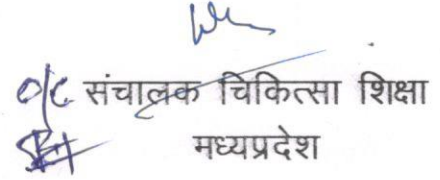 O/C संचालक चिकित्सा शिक्षा
मध्यप्रदेश